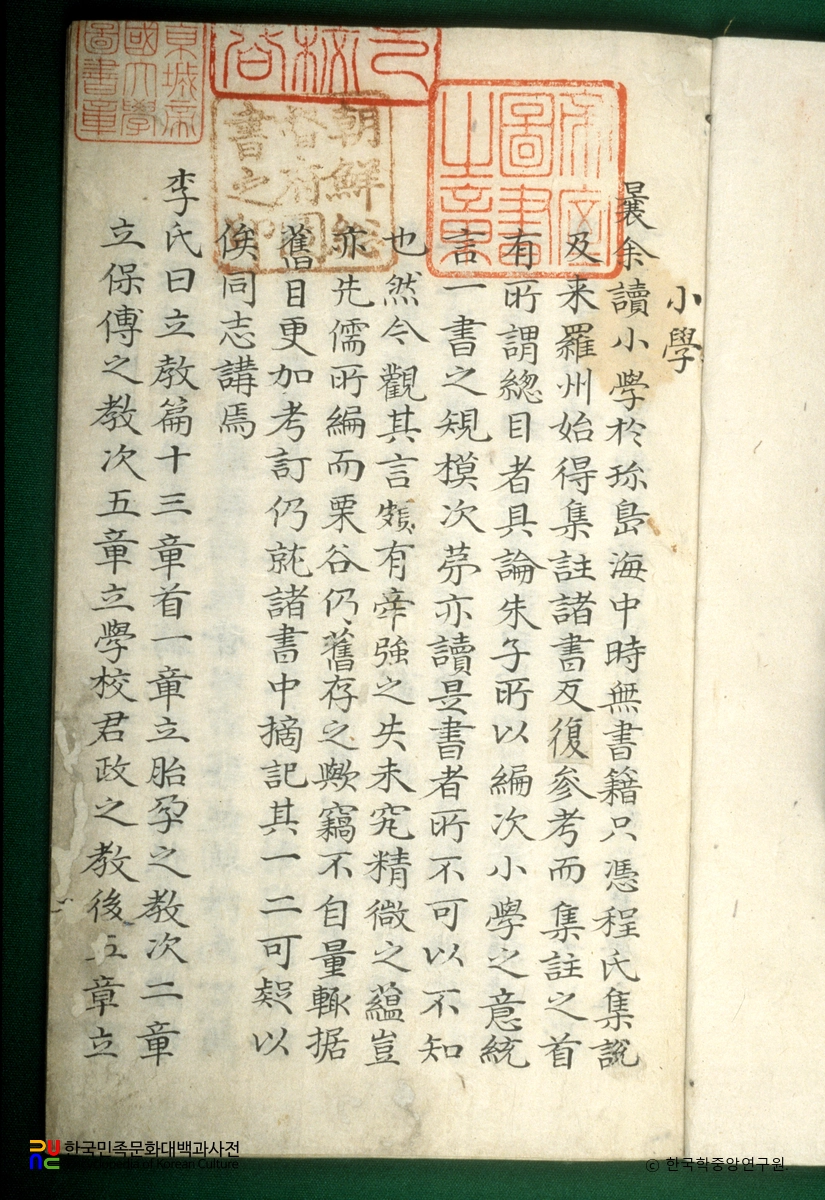 小學
曩余讀小學於珎島海中時無書籍只憑程氏集說
及来羅州始得集註諸書反復参考而集註之首
有所謂總目者具論朱子所以編次小學之意統
言一書之規模次苐亦讀是書者所不可以不知
也然今觀其言頗有牽強之失未究精微之蘊豈
亦先儒所編而栗谷仍舊存之歟竊不自量輙据
舊目更加考訂仍就諸書中摘記其一二可疑以
俟同志講焉
李氏曰立教篇十三章首一章立胎孕之教次二章
立保傅之教次五章立學校君政之教後五章立
帝室圖書之章
朝鮮總督府圖書之印
京城帝國大學圖書章
한국민족문화대백과사전
Encyclopedia of Korean Culture
© 한국학중앙연구원